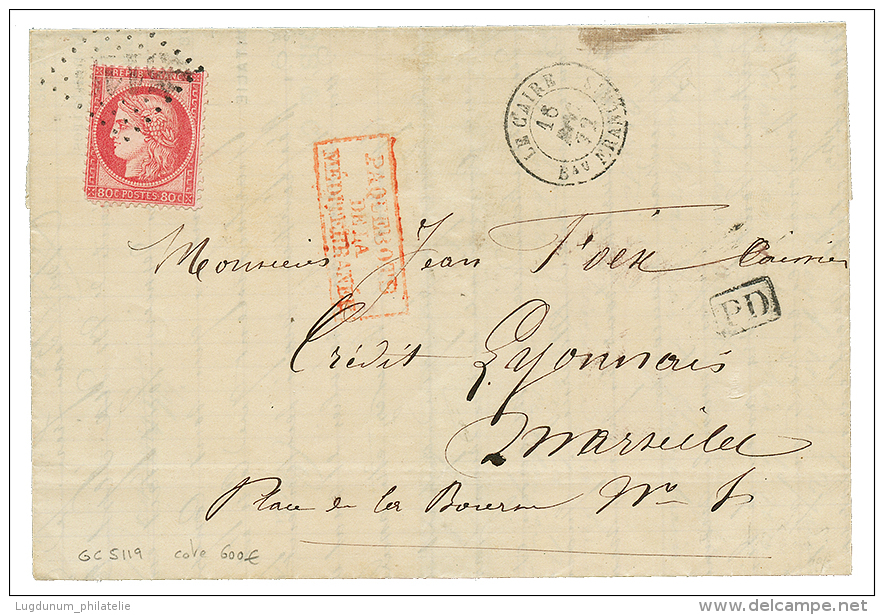 REPUB. FRANC.
80C POSTES 80C
LE CAIRE
18
72
Bau FRANÇAIS
PAQUEBOTS
DE LA
MÉDITERRANÉE
Monsieur Jean
PD
Crédit Lyonnais
Marseille
Place de la Bourse No
GC 5119 cote 600€
Lugdunum_philatelie
delcampe.net